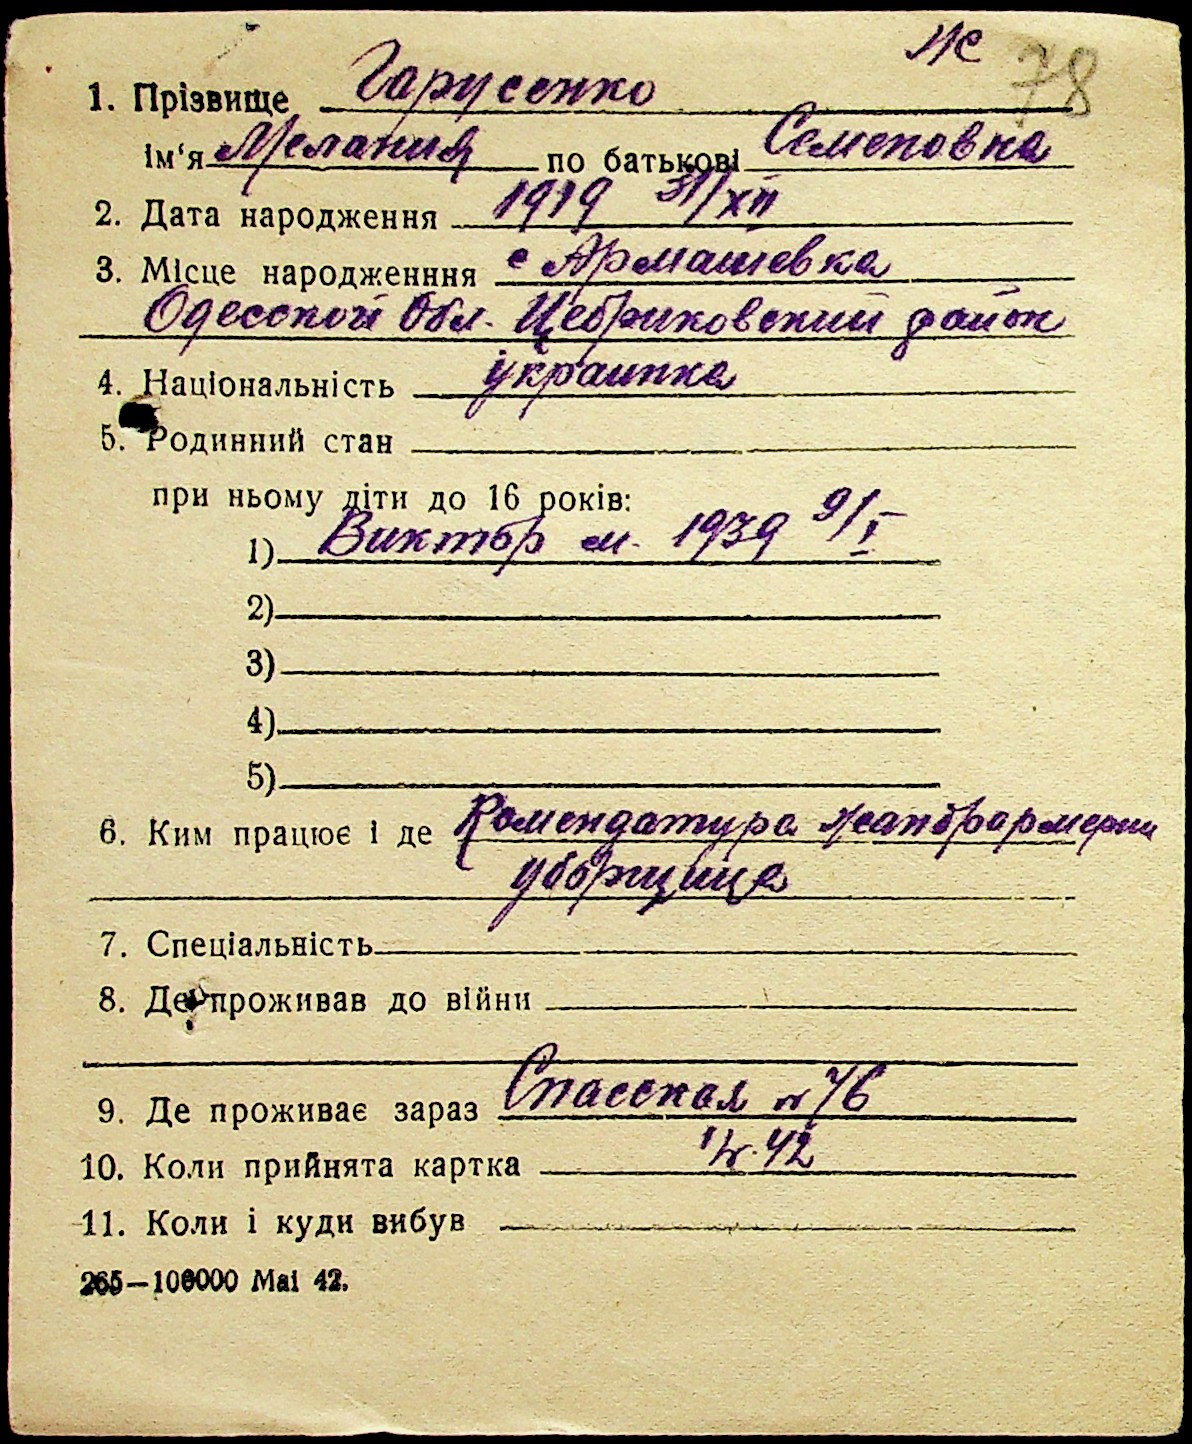 же 78
1. Прізвище Гарусенко
ім‘я Мелания по батькові Семеновна
2. Дата народження 1919 31/XII
3. Місце народженння с Армашевка
Одесской Обл. Цебриковский район
4. Національність украинка
5. Родинний стан
при ньому діти до 16 років:
1) Виктор м. 1939 9/I
2)
3)
4)
5)
6. Ким працює і де Комендатура
уборщица
7. Спеціальність
8. Де проживав до війни
9. Де проживає зараз Спасская № 76
10. Коли прийнята картка 42
11. Коли і куди вибув
265—100000 Mai 42.